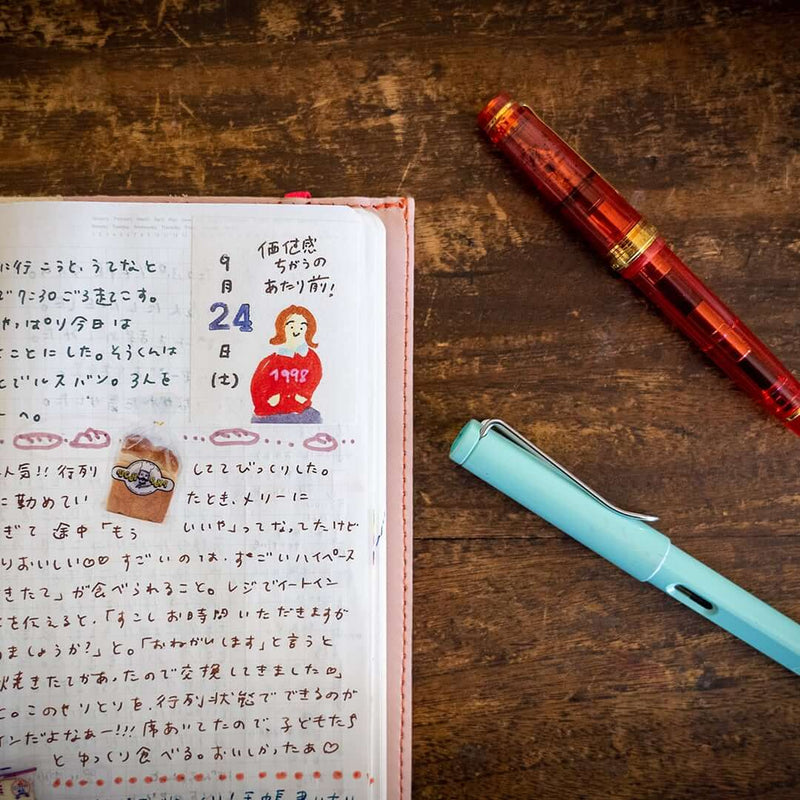 に行こうと、うてなと
で7:30ごろ起こす。
やっぱり今日は
ことにした。そうくんは
とでルスバン。3人を
ーへ。
9
月
24
日
(土)
価値感
ちがうの
あたり前!
1998
人気!!行列 しててびっくりした。
に勤めてい たとき、メリーに
ぎて 途中「もう いいや」ってなってたけど
りおいしい♡♡ すごいのは、すごいハイペース
きたて」が食べられること。レジでイートイン
を伝えると、「すこしお時間いただきますが
ましょうか?」と。「おねがいします」と言うと
焼きたてがあったので交換してきました
と。このやりとりを、行列状態でできるのが
インだよなぁー!!!席あいてたので、子どもたち
とゆっくり食べる。おいしかったぁ♡